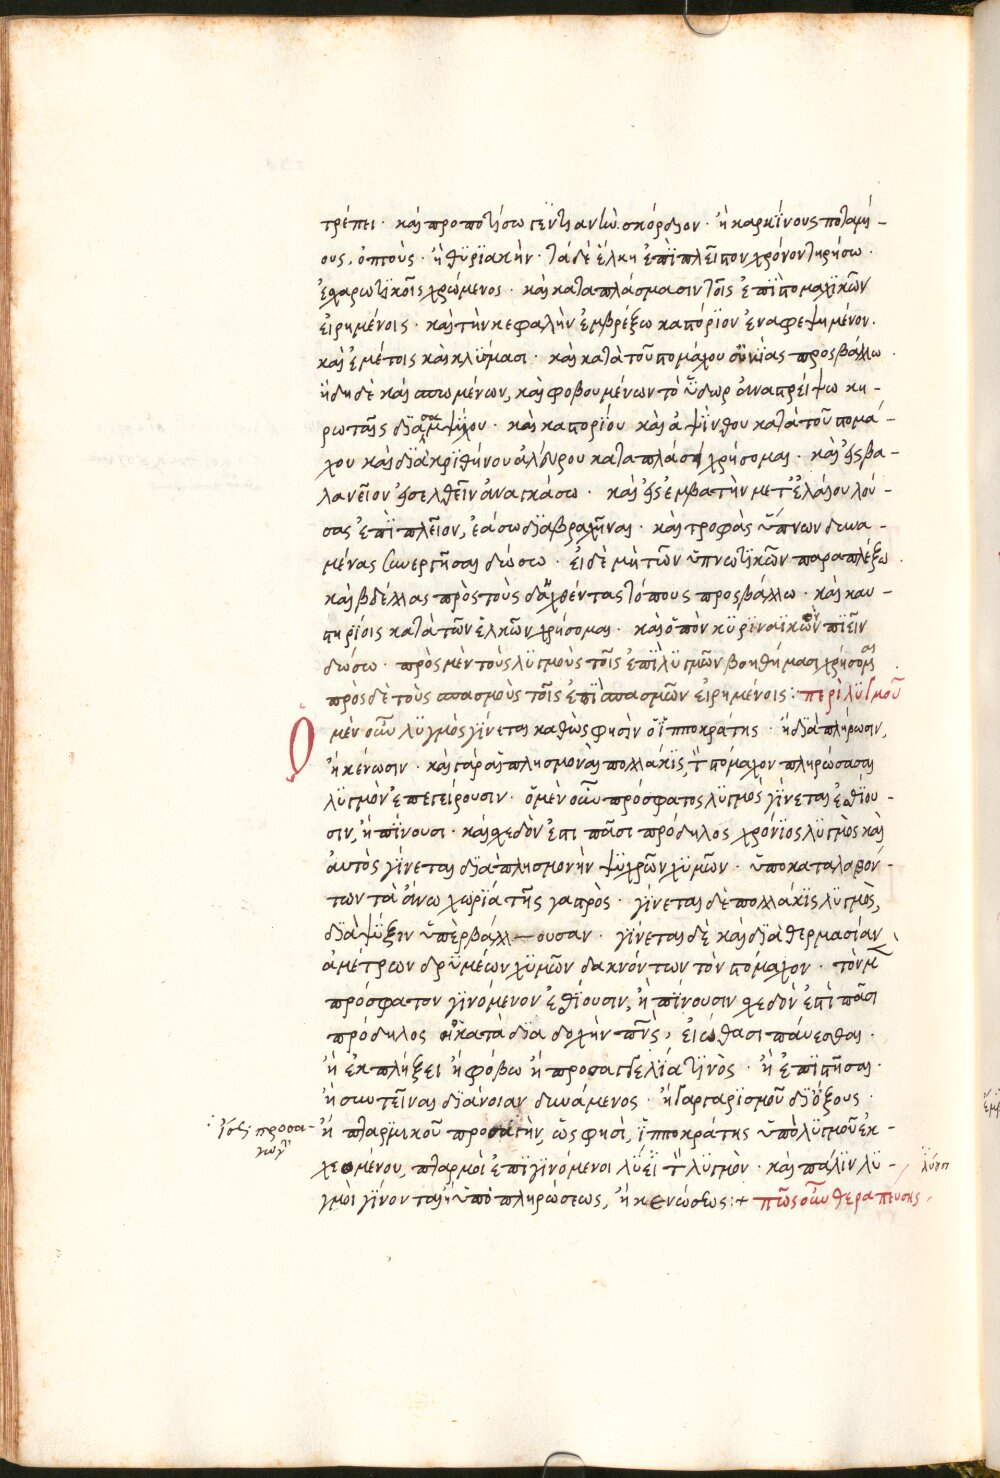 τρέπει · καὶ προποτίσω γεντιανὴν σκόρδιον · ἢ καρκίνους ποταμί-
ους, ὀπτοὺς · ἢ θυριακὴν · τὰ δὲ ἕλκη ἐπὶ πλεῖστον χρόνον τηρήσω ·
ἐσχαρωτικοῖς χρώμενος · καὶ καταπλάσμασιν τοῖς ἐπὶ στομαχικῶν
εἰρημένοις · καὶ τὴν κεφαλὴν ἐμβρέξω καστόριον ἐναφεψημένον.
καὶ ἐμέτοις καὶ κλύσμασι · καὶ κατὰ τοῦ στομάχου σικύας προσβάλλω ·
ἤδη δὲ καὶ σπωμένων, καὶ φοβουμένων τὸ ὕδωρ ἀνατρείψω κη-
ρωταῖς διὰ σαμψύχου · καὶ καστορίου καὶ ἀψίνθου κατὰ τοῦ στομά-
χου καὶ διὰ κριθίνου ἀλεύρου καταπλάση χρήσομαι · καὶ εἰς βα-
λανεῖον εἰσελθεῖν ἀναγκάσω · καὶ εἰς ἐμβατὴν μετ' ἐλαίου λού-
σας ἐπὶ πλεῖον, ἐάσω διαβραχῆναι · καὶ τροφὰς ὕπνων δυνα-
μένας συνεργῆσαι δώσω · εἰ δὲ μὴ τῶν ὑπνωτικῶν παραπλέξω ·
καὶ βδέλλας πρὸς τοὺς δαχθέντας τόπους προσβάλλω · καὶ καυ-
στηρίοις κατὰ τῶν ἑλκῶν χρήσομαι · καὶ ὀπὸν κυριναϊκὸν πιεῖν
δώσω · πρὸς μὲν τοὺς λυγμοὺς τοῖς ἐπὶ λυγμῶν βοηθήμασι χρήσομαι ·
πρὸς δὲ τοὺς σπασμοὺς τοῖς ἐπὶ σπασμῶν εἰρημένοις : περὶ λυγμοῦ
Ὁ μὲν οὖν λυγμὸς γίνεται καθώς φησὶν ὁ ἱπποκράτης · ἢ διὰ πλήρωσιν,
ἢ κένωσιν · καὶ γὰρ αἱ πλησμοναὶ πολλάκις, τὸν στόμαχον πληρώσασαι
λυγμὸν ἐπεγείρουσιν · ὁ μὲν οὖν πρόσφατος λυγμὸς γίνεται ἐσθίου-
σιν, ἢ πίνουσι · καὶ σχεδὸν ἐπι πᾶσι πρόδηλος χρόνιος λυγμὸς καὶ
αὐτὸς γίνεται διὰ πλησμονὴν ψυχρῶν χυμῶν · ὑποκαταλαβόν-
των τὰ ἄνω χωρία τῆς γαστρὸς · γίνεται δὲ πολλάκις λυγμὸς,
διὰ ψύξιν ὑπὲρβάλλ—ουσαν · γίνεται δὲ καὶ διὰ θερμασίαν
ἀμέτρων δρυμέων χυμῶν δακνόντων τὸν στόμαχον · τὸν μὲν
πρόσφατον γινόμενον ἐσθίουσιν, ἢ πίνουσιν σχεδὸν ἐπὶ πᾶσι
πρόδηλος ἢ κατὰ διαδοχὴν τινὲς, εἰώθασι παύεσθαι ·
ἢ ἐκπλήξει ἢ φόβω ἢ προσαγγελία τινὸς · ἢ ἐπιστῆσαι ·
ἢ συντεῖναι διάνοιαν δυνάμενος · ἢ γαργαρισμοῦ δι' ὄξους ·
ἢ πταρμικοῦ προσάγην, ὥς φησὶ, ἱπποκράτης ὑπὸ λυγμοῦ ἐκ-
χεομένου, πταρμοὶ ἐπιγινόμενοι λύει τὸν λυγμὸν · καὶ πάλιν λυ-
γμοὶ γίνονται ἢ ὑπὸ πληρώσεως, ἢ κενώσεως :+ πῶς οὖν θεραπευσης ·
ἴσως προσα-
γωγὴ